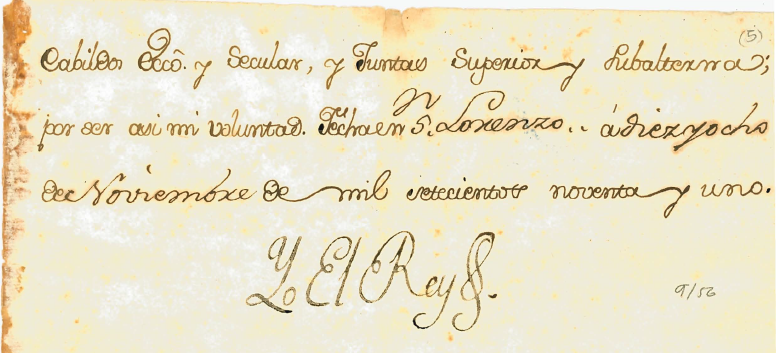 (5)
Cabildos Eccô. y Secular, y Juntas Superior y Subalterna;
por ser asi mi voluntad. Fecha en Sn. Lorenzo.. á diez y ocho
de Noviembre de mil setecientos noventa y uno.
Yo El Rey
9/56